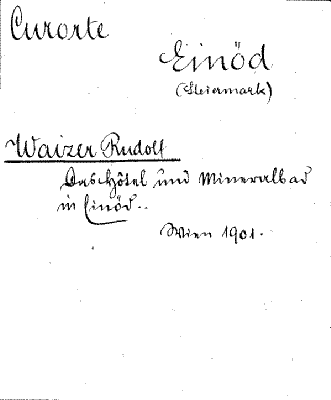 Curorte
Einöd
(Steiermark)
Waizer Rudolf
Das Hôtel und Mineralbad
in Einöd.
Wien 1901.